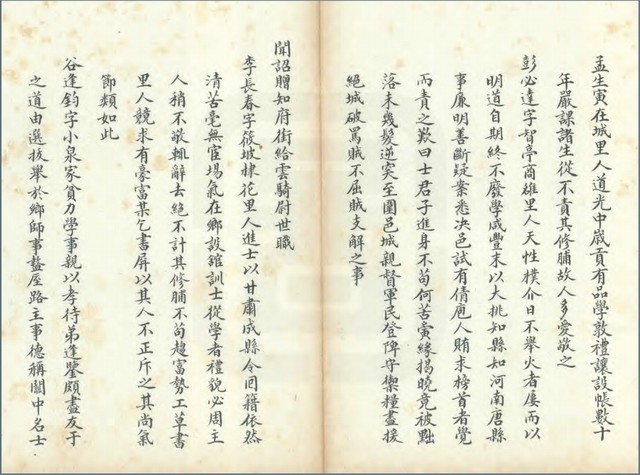 孟生寅在城里人道光中歲貢有品學敦禮讓設帳數十
年嚴課諸生從不責其修脯故人多愛敬之
彭必達字智亭商雒里人天性樸介日不舉火者屢而以
明道自期終不廢學咸豐末以大挑知縣知河南唐縣
事廉明善斷疑案悉決邑試有倩庖人賄求榜首者覺
而責之歎曰士君子進身不苟何苦夤緣揭曉竟被黜
落未幾髮逆突至圍邑城親督軍民登陴守禦糧盡援
絕城破罵賊不屈賊支解之事
聞詔贈知府銜給雲騎尉世職
李長春字筱坡棣花里人進士以甘肅成縣令回籍依然
清苦毫無官場氣在鄉設舘訓士從學者禮貌必周主
人稍不敬輒辭去絕不計其修脯不苟趨富勢工草書
里人競求有豪富某乞書屏以其人不正斥之其尚氣
節類如此
谷逢鈞字小泉家貧力學事親以孝待弟逢鑒頗盡友于
之道由選拔舉於鄉師事盩厔路主事德稱關中名士